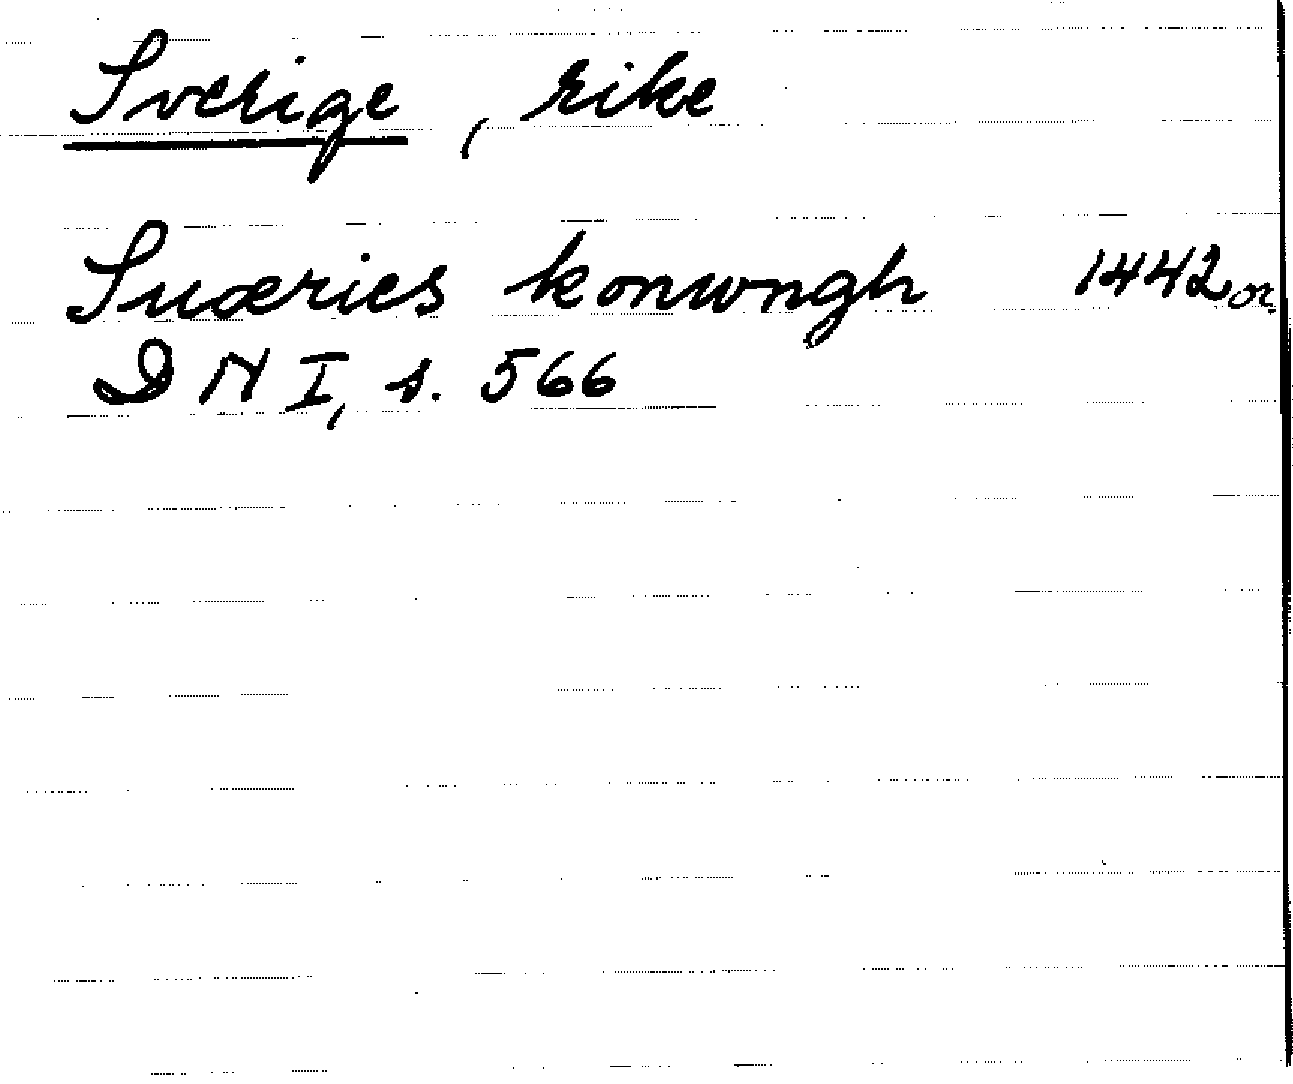 Sverige, rike
Suæries konwngh 1442 or.
DN I, s. 566